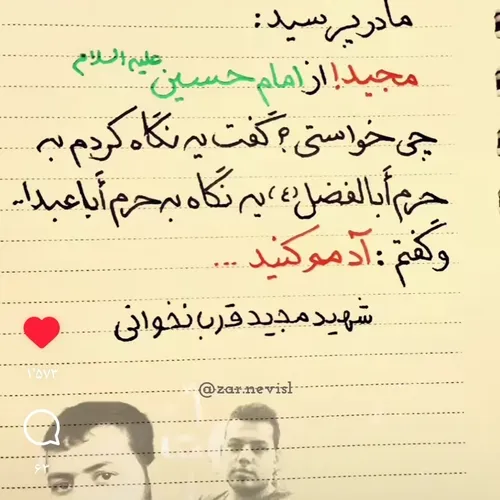 مادر پرسید:
مجید! از امام حسین علیه السلام
چی خواستی؟ گفت یه نگاه کردم به
حرم أبالفضل(ع) یه نگاه به حرم أباعبدا...
و گفتم: آدمم کنید ...
شهید مجید قربانخوانی
@zar.nevisl
۱٬۵۷۲
۶۲